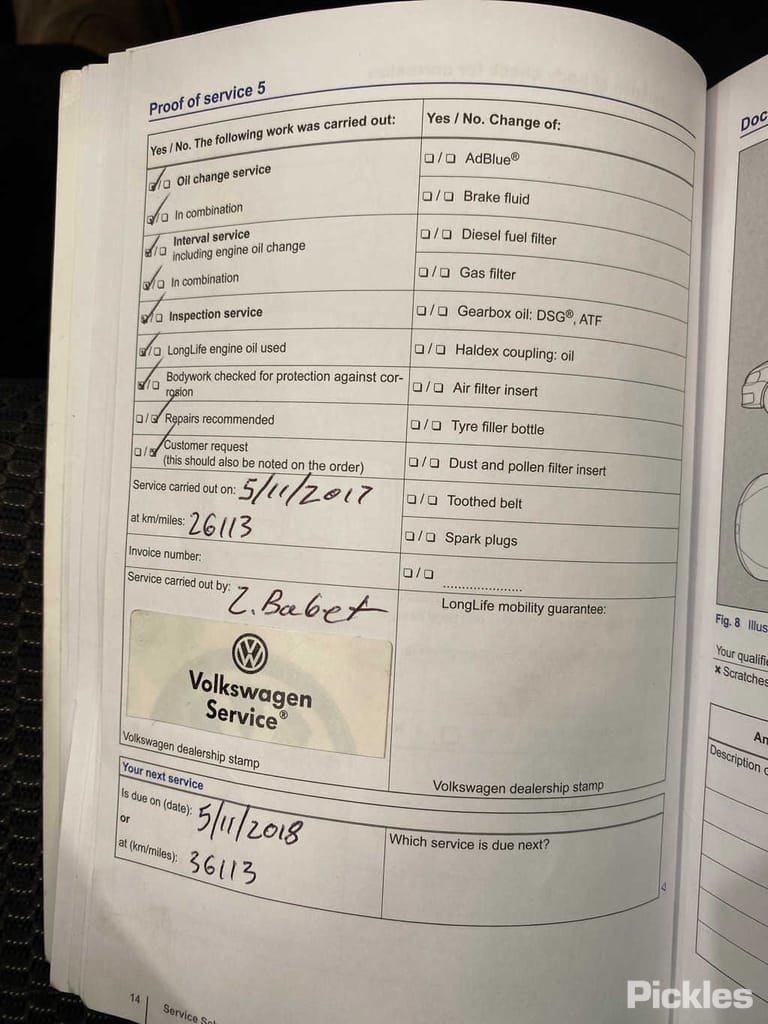 Proof of service 5
Yes / No. The following work was carried out:
☑/☐ Oil change service
☑/☐ In combination
☑/☐ Interval service
including engine oil change
☑/☐ In combination
☑/☐ Inspection service
☑/☐ LongLife engine oil used
☑/☐ Bodywork checked for protection against cor-
rosion
☐/☑ Repairs recommended
☐/☑ Customer request
(this should also be noted on the order)
Service carried out on: 5/11/2017
at km/miles: 26113
Invoice number:
Service carried out by: Z. Babet
Volkswagen
Service®
Volkswagen dealership stamp
Yes / No. Change of:
☐/☐ AdBlue®
☐/☐ Brake fluid
☐/☐ Diesel fuel filter
☐/☐ Gas filter
☐/☐ Gearbox oil: DSG®, ATF
☐/☐ Haldex coupling: oil
☐/☐ Air filter insert
☐/☐ Tyre filler bottle
☐/☐ Dust and pollen filter insert
☐/☐ Toothed belt
☐/☐ Spark plugs
☐/☐ ....................
LongLife mobility guarantee:
Volkswagen dealership stamp
Your next service
Is due on (date): 5/11/2018
or
at (km/miles): 36113
Which service is due next?
14
Service
Doc
Fig. 8 Illus
Your qualifi
× Scratches
An
Description
Pickles